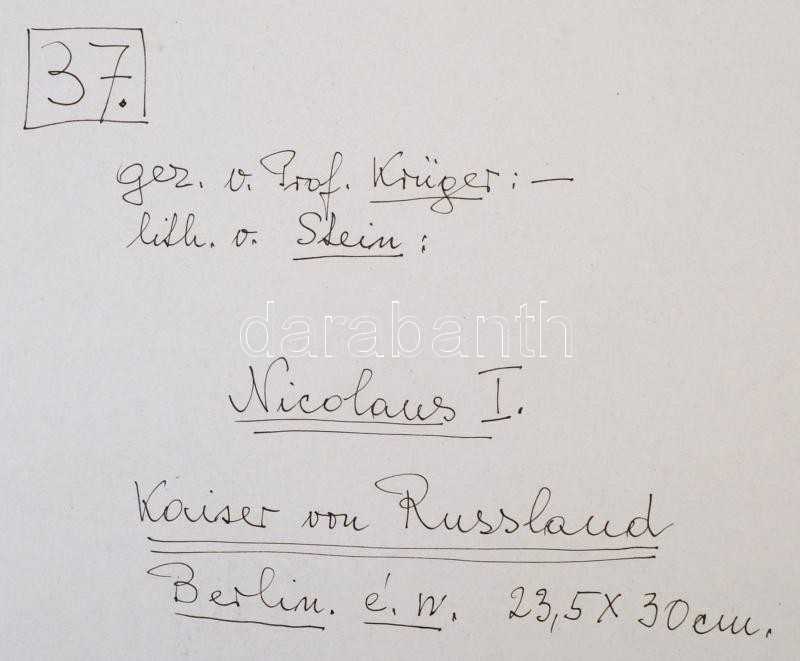 37.
gez. v. Prof. Krüger: —
lith. v. Stein:
darabanth
Nicolaus I.
Kaiser von Russland
Berlin. é. n. 23,5 x 30 cm.